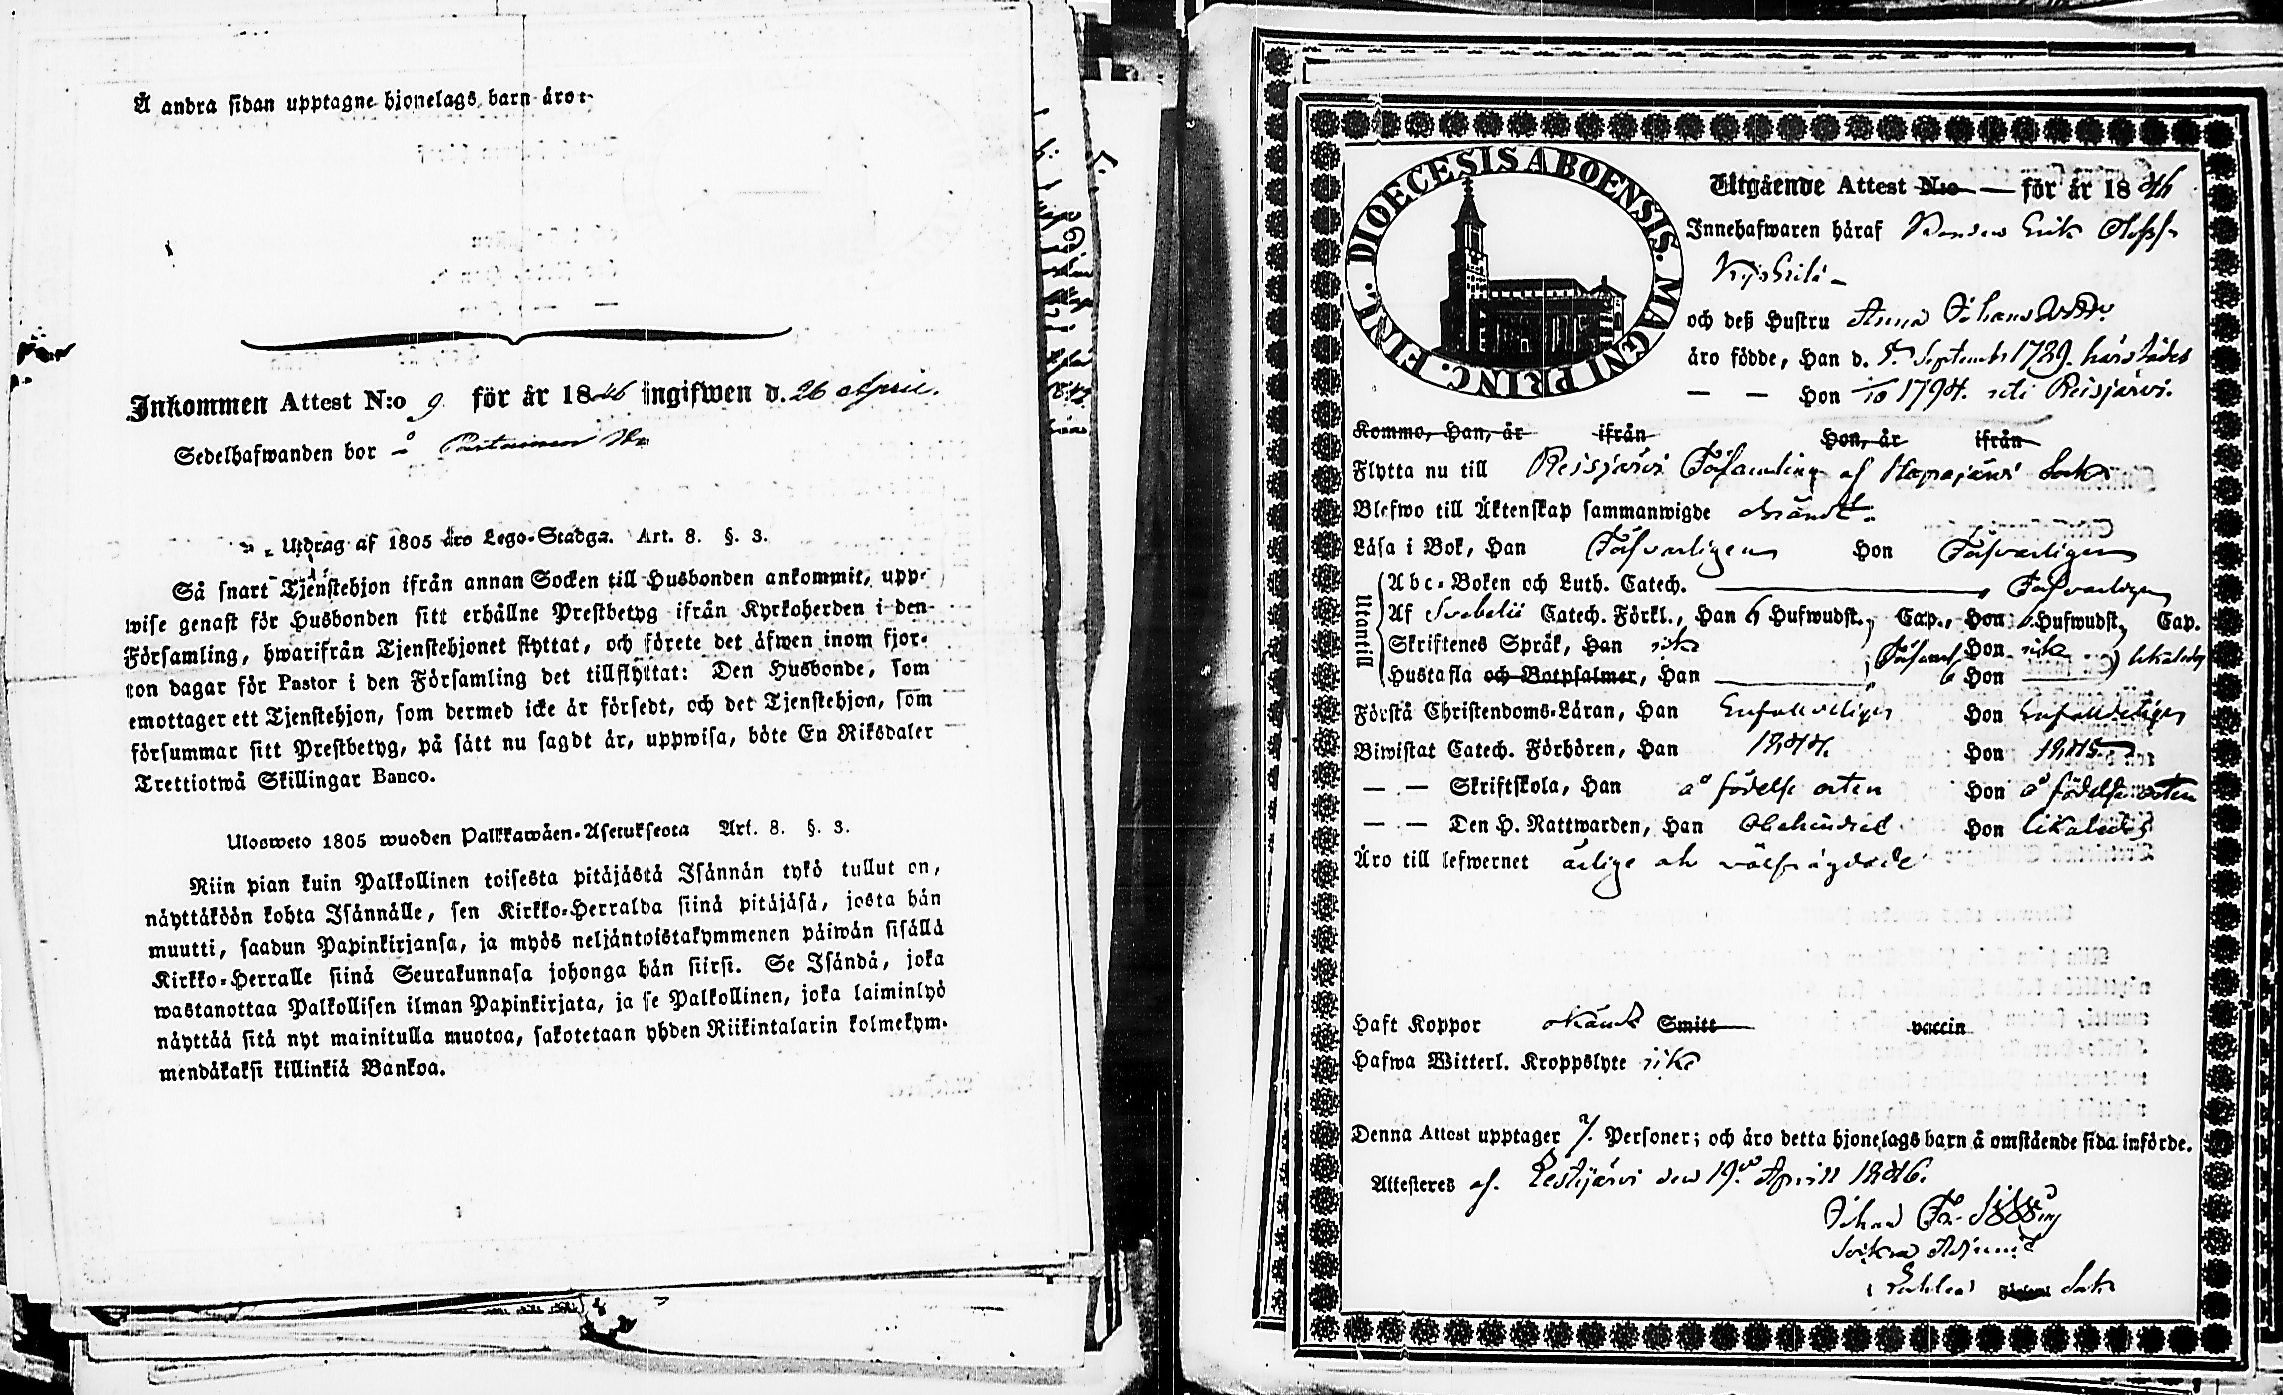 Å andra sidan upptagne hjonelags barn äro:
Inkommen Attest N:o 9 för år 1846 ingifwen d. 26 April.
Sedelhafwanden bor å
Utdrag af 1805 års Lego-Stadga. Art. 8. §. 3.
Så snart Tjenstehjon ifrån annan Socken till Husbonden ankommit, upp-
wise genast för Husbonden sitt erhållne Prestbetyg ifrån Kyrkoherden i den
Församling, hwarifrån Tjenstehjonet flyttat, och förete det äfwen inom fjor-
ton dagar för Pastor i den Församling det tillflyttat: Den Husbonde, som
emottager ett Tjenstehjon, som dermed icke är försedt, och det Tjenstehjon, som
försummar sitt Prestbetyg, på sätt nu sagdt är, uppwisa, böte En Riksdaler
Trettiotwå Skillingar Banco.
Ulosweto 1805 wuoden Palkkawäen-Asetuksesta Art. 8. §. 3.
Niin pian kuin Palkollinen toisesta pitäjästä Isännän tykö tullut on,
näyttäköön kohta Isännälle, sen Kirkko-Herralda siinä pitäjäsä, josta hän
muutti, saadun Papinkirjansa, ja myös neljäntoistakymmenen päiwän sisällä
Kirkko-Herralle siinä Seurakunnasa johonga hän siirsi. Se Isändä, joka
wastanottaa Palkollisen ilman Papinkirjata, ja se Palkollinen, joka laiminlyö
näyttää sitä nyt mainitulla muotoa, sakotetaan yhden Riikintalarin kolmekym-
mendäkaksi killinkiä Bankoa.
DIOECESIS ABOENSIS. MAGNI PRINC. FINL.
Utgående Attest N:o — för år 1846
Innehafwaren häraf Bonden Erik
och deß Hustru Anna Johansdotter
äro födde, Han d. September 1789. härstädes
— — Hon 1794. uti Reisjärvi.
Kommo, Han, år ifrån Hon, år ifrån
Flytta nu till Reisjärvi Församling af Haapajärvi Sokn
Blefwo till Äktenskap sammanwigde okändt.
Läsa i Bok, Han Försvarligen Hon Försvarligen
Utantill
Abc-Boken och Luth. Catech. — Försvarligen
Af Svebelii Catech. Förkl., Han 6 Hufwudst., Cap., Hon 6 Hufwudst., Cap.
Skriftenes Språk, Han icke Hon icke
Hustafla och Botpsalmer, Han — Hon — likaledes
Förstå Christendoms-Läran, Han Enfaldeligen Hon Enfaldeligen
Biwistat Catech. Förhören, Han 1844. Hon 1845
— — Skriftskola, Han å födelse orten Hon å födelse orten
— — Den H. Nattwarden, Han Obehindrad Hon likaledes
Äro till lefwernet ärlige och välfrägdade
Haft Koppor okändt Smitt vaccin
Hafwa Witterl. Kroppslyte icke
Denna Attest upptager 7. Personer; och äro detta hjonelags barn å omstående sida införde.
Attesteras af. Lestijärvi den 19. April 1846.
Johan Fr.
Adjunct
i Lochteå Sokn